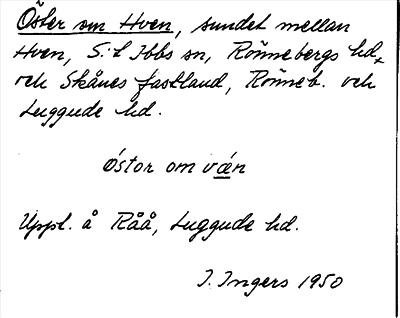 Öster om Hven, sundet mellan
Hven, S:t Ibbs sn, Rönnebergs hd,
och Skånes fastland, Rönneb. och
Luggude hd.
östor om væn
Uppl. å Råå, Luggude hd.
I. Ingers 1950